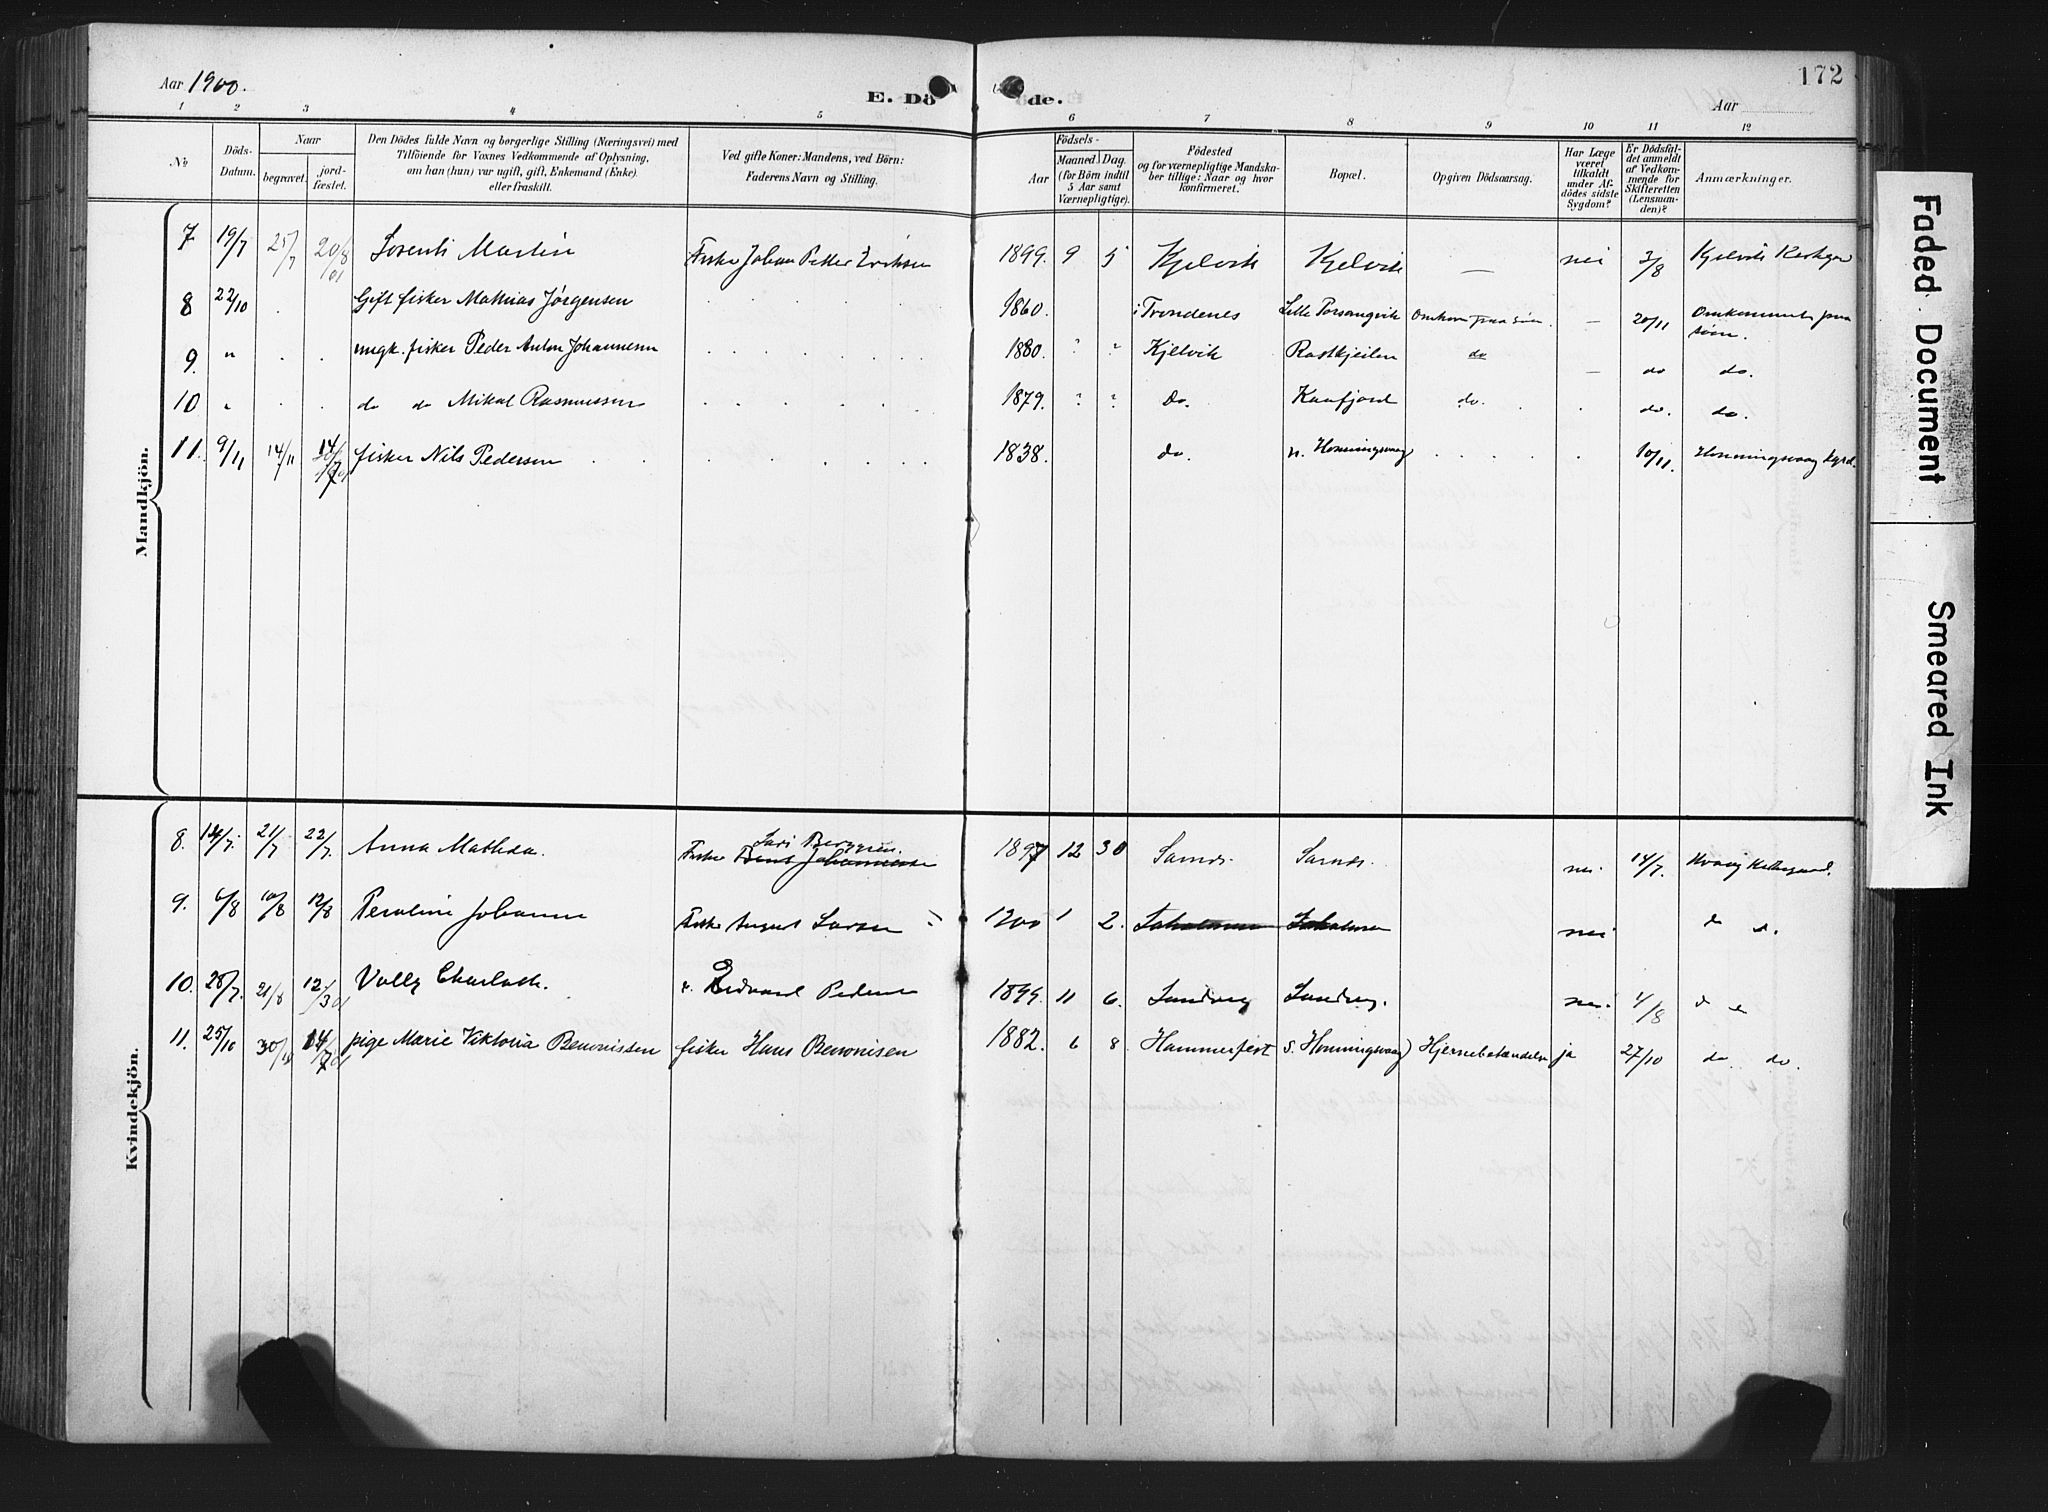 Aar 1900.
E. Döde.
172
Aar
1 2 3 4 5 6 7 8 9 10 11 12
No
Döds-Datum.
Naar
begravet.
jord-fæstet.
Den Dödes fulde Navn og borgerlige Stilling (Næringsvei) med
Tilföiende for Voxnes Vedkommende af Oplysning,
om han (hun) var ugift, gift, Enkemand (Enke)
eller fraskilt.
Ved gifte Koner: Mandens, ved Börn:
Faderens Navn og Stilling.
Födsels-
Aar
Maaned. Dag.
(for Börn indtil
5 Aar samt
Værnepligtige).
Födested
og for værnepligtige Mandska-
ber tillige: Naar og hvor
konfirmeret.
Bopæl.
Opgiven Dödsaarsag.
Har Læge
været
tilkaldt
under Af-
dödes sidste
Sygdom?
Er Dödsfal-
det anmeldt
af Vedkom-
mende for
Skifteretten
(Lensman-
den)?
Anmærkninger.
Mandkjön.
7 19/7 25/7 20/8 01 Sorenti Martin Fisker Johan Petter Eriksen 1899. 9 5 Kjelvik Kjelvik — nei 3/8 Kjelvik
8 22/10 Gift fisker Mathias Jørgensen 1860. i Trondenes Lille Porsangvik Omkom paa søen. — 20/11 Omkommet paa søen.
9. " ungk. fisker Peder Anton Johannesen 1880. " " Kjelvik do — do do.
10 " do do Mikal Rasmussen 1879. " " Do. Kaafjord do. do. do.
11. 9/11 14/11 14/7 01 fisker Nils Pedersen 1838. do. n. Honningsvaag 10/11. Honningsvaag
Kvindekjön.
8. 14/7. 21/7 22/7. Anna Mathda. Fisker Berggren. 1897 12 30 Sarnes. Sarnes. nei. 14/7.
9. 6/8 10/8 12/8 Peroline Johanne Fisker August Larsen 1900 1 2. nei d d.
10. 28/7. 21/8 12/3 01 Valley Charlotte. Edvard Pedersen 1899. 11 6. Sandvig Sandvig. nei. 4/8 d d
11. 25/10 30/10 14/7 01 pige Marie Viktoria Benonissen fisker Hans Benonisen 1882. 6 8. Hammerfest S. Honningsvaag Hjernebetændelse ja 27/10 do do.
Faded Document
Smeared Ink